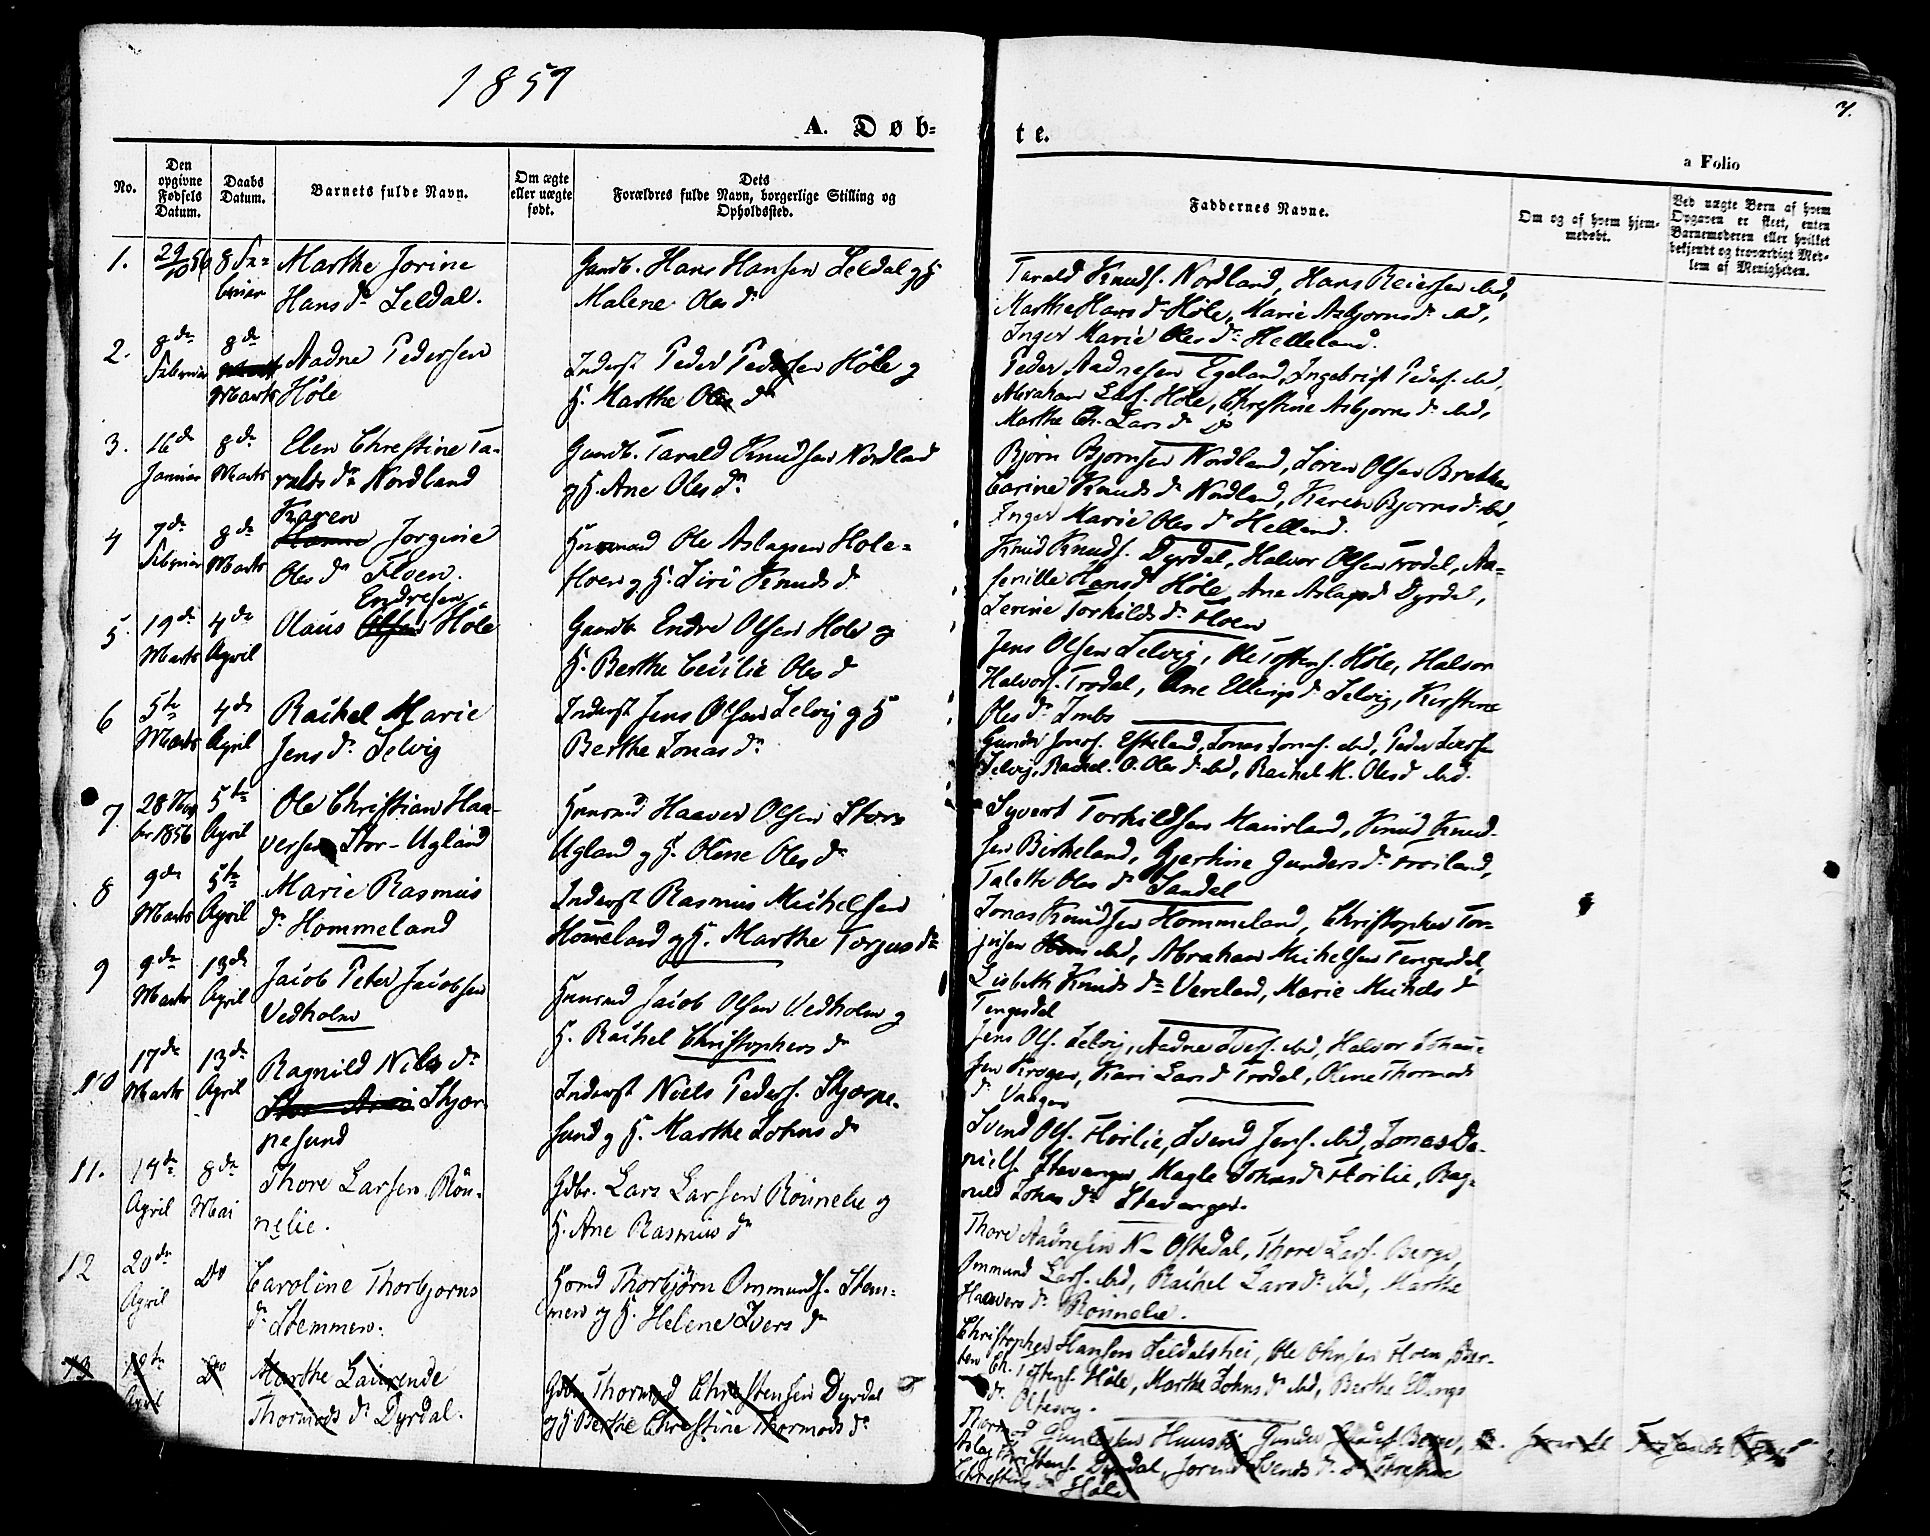 1857
7.
A. Døb-
te.
a Folio
No.
Den
opgivne
Fødsels
Datum.
Daabs
Datum.
Barnets fulde Navn.
Om ægte
eller uægte
født.
Dets
Forældres fulde Navn, borgerlige Stilling og
Opholdssted.
Faddernes Navne.
Om og af hvem hjem-
medøbt.
Ved uægte Børn af hvem
Opgaven er skeet, enten
Barnemoderen eller hvilket
bekjendt og troværdigt Med-
lem af Menigheden.
1.
29/10 56
8 Fe-
bruar
Marthe Jorine
Hans dr Seldal.
Gaardb. Hans Hansen Seldal og H
Malene Oles dr
Tarald Knuds. Nordland, Hans Reiersen ibid,
Marthe Hans dr Höle, Marie Asbjorns dr ibid,
Inger Marie Oles dr Helleland.
2.
8de
Februar
8de
Marts
Aadne Pedersen
Höle
Inderst Peder Pedersen Höle og
H. Marthe Oles dr
Peder Aadnesen Egeland, Ingebrigt Peders. ibid,
Abraham Lars. Höle, Christine Asbjorns dr ibid,
Marthe Ch. Lars dr do
3.
16de
Januar
8de
Marts
Elen Christine Ta-
ralds dr Nordland
Gaardb. Tarald Knudsen Nordland
og H. Ane Oles dr
Bjørn Bjørnsen Nordland, Sören Olsen Brekke
Carine Knuds dr Nordland, Karen Bjorns dr ibid,
Inger Marie Oles dr Helland.
4
7de
Februar
8de
Marts
Karen
Hanne Jorgine
Oles dr Floen.
Husmand Ole Aslagsen Hole-
floen og H. Siri Knuds dr
Knud Knuds. Dyrdal, Halvor Olsen Trodal,
Hans dr Höle, Ane Aslags d Dyrdal,
Serine Torkilds dr Floen
5.
19de
Marts
4de
April
Endresen
Olaus Olsen Höle
Gaardb Endre Olsen Höle og
H. Berthe Cecilie Oles d
Jens Olsen Selvig, Ole Tostens. Höle, Halvor
Halvors. Trodal, Ane Ellings d Selvig, Kirstine
Oles dr Imbs
6
5te
Marts
4de
April
Rachel Marie
Jens dr Selvig
Inderst Jens Olsen Selvig og H
Berthe Jonas dr
Gunder Jons. Eskeland, Jonas Jonas. ibid, Peder
Selvig, Rachel O. Oles d ibid, Rachel M. Oles d ibid.
7.
28 Nov
br 1856
5te
April
Ole Christian Haa-
versen Stor-Ugland
Husmand Haaver Olsen Store
Ugland og H. Oline Oles dr
Syvert Torkildsen Maurland, Knud Knud-
sen Birkeland, Gjertine Gunders dr
Talette Oles dr Sandal
8
9de
Marts
5te
April
Marie Rasmus
dr Hommeland
Inderst Rasmus Michelsen
Homeland og H. Marthe Torjus dr
Jonas Knudsen Hommeland, Christopher Tor-
jusen ibid, Abraham Michelsen Tengesdal,
Lisbeth Knuds dr Vereland, Marie Michels dr
Tengesdal
9
9de
Marts
13de
April
Jacob Peter Jacobsen
Vedholm
Husmand Jacob Olsen Vedholm og
H. Rachel Christophers dr
Jens Ols. Selvig, Aadne Ivers. ibid, Halvor Johan-
sen Krogen, Kari Lars d Trodal, Oline Thormods
dr Vaagen
10
17de
Marts
13de
April
Ragnild Niels dr
Skjør-
pesund
Inderst Niels Peders. Skjørpe-
sund og H. Marthe Johns dr
Svend Ols. Horlie, Svend Jens. ibid, Jonas Da-
niels. Stavanger, Magle Johns dr Horlie, Rag-
nild Johns dr Stavanger.
11.
14de
April
8de
Mai
Thore Larsen Rön-
nelie.
Gdbr. Lars Larsen Rönnelie og
H. Ane Rasmus dr
Thore Aadnesen N- Oftedal, Thore Lars. Berge,
Ommund Lars. ibid, Rachel Lars dr ibid, Marthe
Haavers dr Rönnelie.
12
20de
April
Do
Caroline Thorbjorns
dr Stemmen.
Husmd Thorbjörn Ommunds. Stem-
men og H. Helene Ivers dr
Christopher Hansen Seldalshei, Ole Olsen Floen,
Ch. Tostens. Höle, Marthe Johns dr ibid, Berthe Ellings
dr Oltesvig.
13
April
Do
Marthe Laurende
Thormods dr Dyrdal.
Gdbr Thormod Christensen Dyrdal
og H Berthe Christine Thormods dr
Gunder
Dyrdal, Svends dr
dr Höle